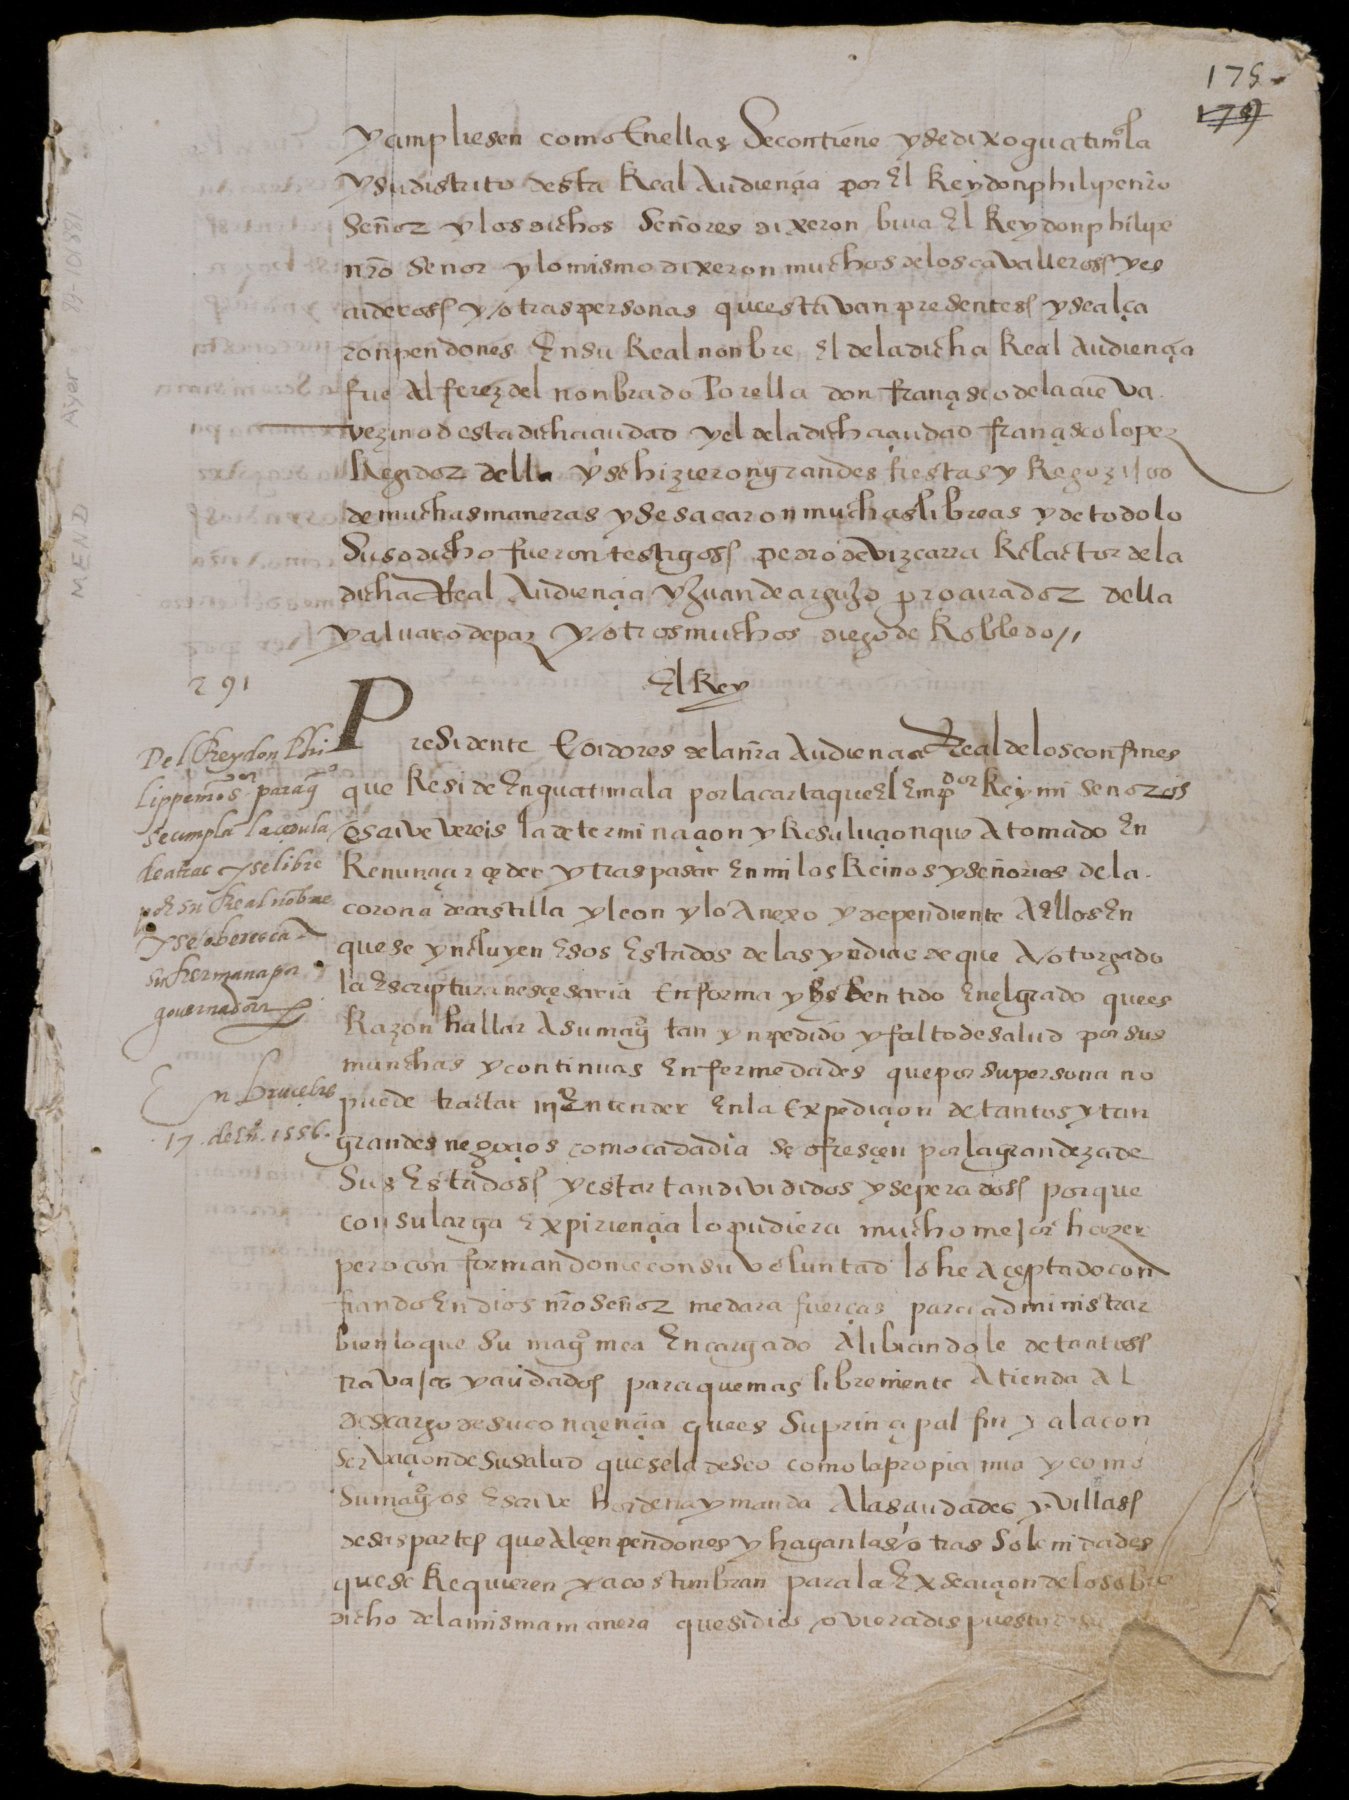 175
179
y cumpliesen como En ellas Se contiene y se dixo guatimala
y su distrito desta Real Audiençia por El Rey don philipe nro
Señor y los dichos Señores dixeron biua El Rey don philipe
nro Señor y lo mismo dixeron muchos de los cavalleros y es
cuderos y otras personas que estavan presentes y se alça
ron pendones En su Real nonbre El de la dicha Real Audiençia
fue Alferez del nonbrado Por ella don françisco de la cueva
vezino desta dicha çiudad y el de la dicha çiudad françisco lopez
Regidor della y se hizieron grandes fiestas y Regozijos
de muchas maneras y se sacaron muchas libreas y de todo lo
Susodicho fueron testigos pedro de Vizcarra Relactor de la
dicha Real Audiençia y Juan de argujo procurador della
y aluaro de paz y otros muchos diego de Robledo //
291
El Rey
Presidente E oidores de la nra Audiençia Real de los confines
que Reside En guatimala por la carta quel Empdor Rey mi Señor os
Escrive vereis la determinaçion y Resuluçion que A tomado En
Renunçiar çeder y traspasar En mi los Reinos y señorios de la
corona de castilla y leon y lo Anexo y dependiente A Ellos En
que se yncluyen Esos Estados de las yndias de que A otorgado
la Escriptura nesçesaria En forma y he sentido En el grado que es
Razon hallar A su magd tan ynpedido y falto de salud por sus
munchas y continuas Enfermedades que por su persona no
puede tractar ni Entender En la Expediçion de tantos y tan
grandes negoçios como cada dia se ofresçen por la grandeza de
Sus Estados y estar tan divididos y seperados porque
con su larga Expiriençia lo pudiera mucho mejor hazer
pero conformandome con su voluntad lo he Açeptado con
fiando En dios nro Señor me dara fuerças para administrar
bien lo que Su magd me a Encargado Alibiandole de tantos
travajos y cuidados para que mas libremente Atienda Al
descargo de su conçiençia que es Su prinçipal fin y a la con
servaçion de su salud que se la deseo como la propia mia y como
Su magd os Escrive hordena y manda A las çiudades y villas
desas partes que Alçen pendones y hagan las otras Solenidades
que se Requieren y acostunbran para la Exsecuçion de lo sobre
dicho de la misma manera que si dios oviera dispuesto de su
Del Rey don Phi
lippe nro sor para q
se cumpla la cedula
de atras y se libre
por su Real nobre
y se obedesca A
su hermana por
gouernadora
En bruçelas
17. de En. 1556.
Ayer
MEND